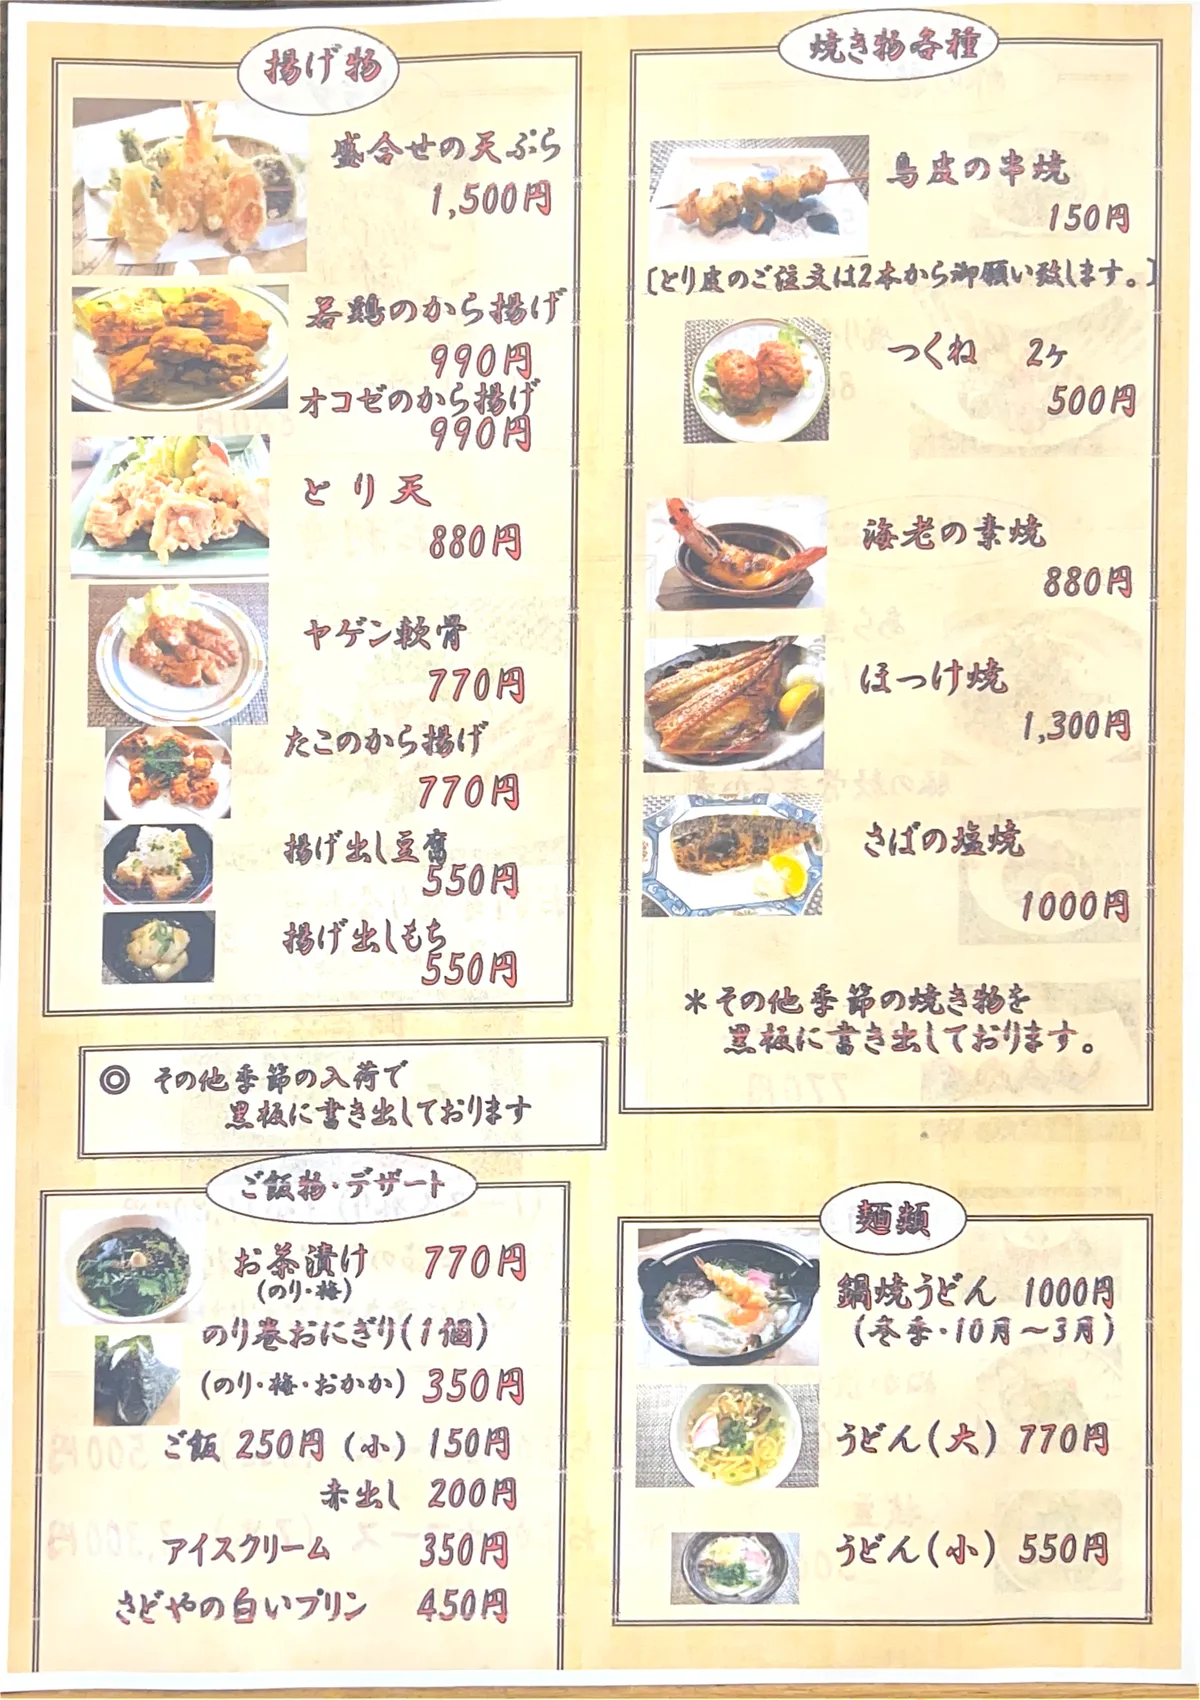 揚げ物
盛合せの天ぷら
1,500円
若鶏のから揚げ
990円
オコゼのから揚げ
990円
とり天
880円
ヤゲン軟骨
770円
たこのから揚げ
770円
揚げ出し豆腐
550円
揚げ出しもち
550円
◎ その他季節の入荷で
黒板に書き出しております
ご飯物・デザート
お茶漬け 770円
(のり・梅)
のり巻おにぎり(1個)
(のり・梅・おかか) 350円
ご飯 250円 (小) 150円
赤出し 200円
アイスクリーム 350円
さどやの白いプリン 450円
焼き物各種
鳥皮の串焼
150円
[とり皮のご注文は2本から御願い致します。]
つくね 2ヶ
500円
海老の素焼
880円
ほっけ焼
1,300円
さばの塩焼
1000円
*その他季節の焼き物を
黒板に書き出しております。
麺類
鍋焼うどん 1000円
(冬季・10月～3月)
うどん(大) 770円
うどん(小) 550円